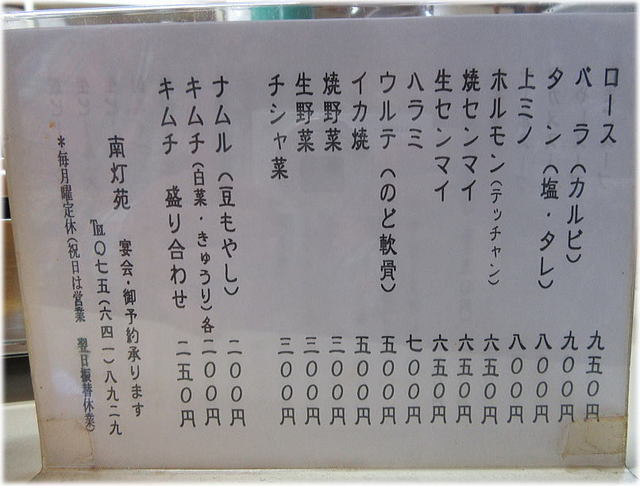 ロース 九五〇円
バラ(カルビ) 九〇〇円
タン(塩・タレ) 八〇〇円
上ミノ 八〇〇円
ホルモン(テッチャン) 六五〇円
焼センマイ 六五〇円
生センマイ 六五〇円
ハラミ 七〇〇円
ウルテ(のど軟骨) 五〇〇円
イカ焼 五〇〇円
焼野菜 三〇〇円
生野菜 三〇〇円
チシャ菜 三〇〇円
ナムル(豆もやし) 二〇〇円
キムチ(白菜・きゅうり)各二〇〇円
キムチ 盛り合わせ 二五〇円
宴会・御予約承ります
南灯苑 ℡〇七五(六四一)八九二九
*毎月曜定休(祝日は営業 翌日振替休業)